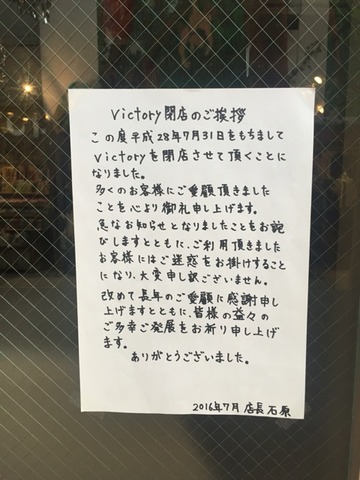 victory閉店のご挨拶
この度平成28年7月31日をもちまして
victoryを閉店させて頂くことに
なりました。
多くのお客様にご愛顧頂きました
ことを心より御礼申し上げます。
急なお知らせとなりましたことをお詫
びしますとともに、ご利用頂きました
お客様にはご迷惑をお掛けすること
になり、大変申し訳ございません。
改めて長年のご愛顧に感謝申し
上げますとともに、皆様の益々の
ご多幸ご発展をお祈り申し上げ
ます。
ありがとうございました。
2016年7月 店長 石原